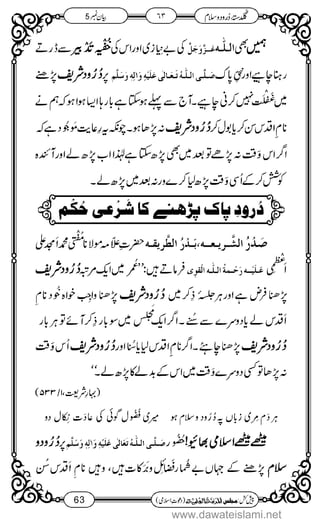 بیان نمبر 5 ٦٣ گلدستہ درود و سلام
ہمیں بھی اللہ عزوجل کی بے نیازی اور اس کی خفیہ تدبیر سے ڈرتے
رہنا چاہیے اور نبی پاک صلی اللہ تعالی علیہ والہ وسلم پر درود شریف پڑھنے
میں غفلت نہیں کرنی چاہیے۔ آج سے پہلے ہو سکتا ہے بارہا ایسا ہوا ہو کہ ہم نے
نام اقدس سن کر یا بول کر درود شریف نہ پڑھا ہو۔ چونکہ یہ رعایت موجود ہے کہ
اگر اس وقت نہ پڑھے تو بعد میں بھی پڑھ سکتا ہے لہٰذا اب پڑھ لے اور آئندہ
کوشش کرکے اسی وقت پڑھ لیا کرے ورنہ بعد میں پڑھ لے۔
درود پاک پڑھنے کا شرعی حکم
صدر الشریعہ، بدر الطریقہ حضرت علامہ مولانا مفتی محمد امجد علی
اعظمی علیہ رحمۃ اللہ القوی فرماتے ہیں: ’’عمر میں ایک مرتبہ درود شریف
پڑھنا فرض ہے اور ہر جلسۂ ذکر میں درود شریف پڑھنا واجب خواہ خود نام
اقدس لے یا دوسرے سے سنے۔ اگر ایک مجلس میں سو بار ذکر آئے تو ہر بار
درود شریف پڑھنا چاہئے۔ اگر نام اقدس لیا یا سنا اور درود شریف اس وقت
نہ پڑھا تو کسی دوسرے وقت میں اس کے بدلے کا پڑھ لے۔‘‘
(بہارِ شریعت، ١/ ٥٣٣)
ہر دم مری زباں پہ درود و سلام ہو میری فضول گوئی کی عادت نکال دو
میٹھے میٹھے اسلامی بھائیو! حضور صلی اللہ تعالی علیہ والہ وسلم پر درود و
سلام پڑھنے کے جہاں بے شمار فضائل و برکات ہیں، وہیں نام اقدس سن
63
www.dawateislami.net